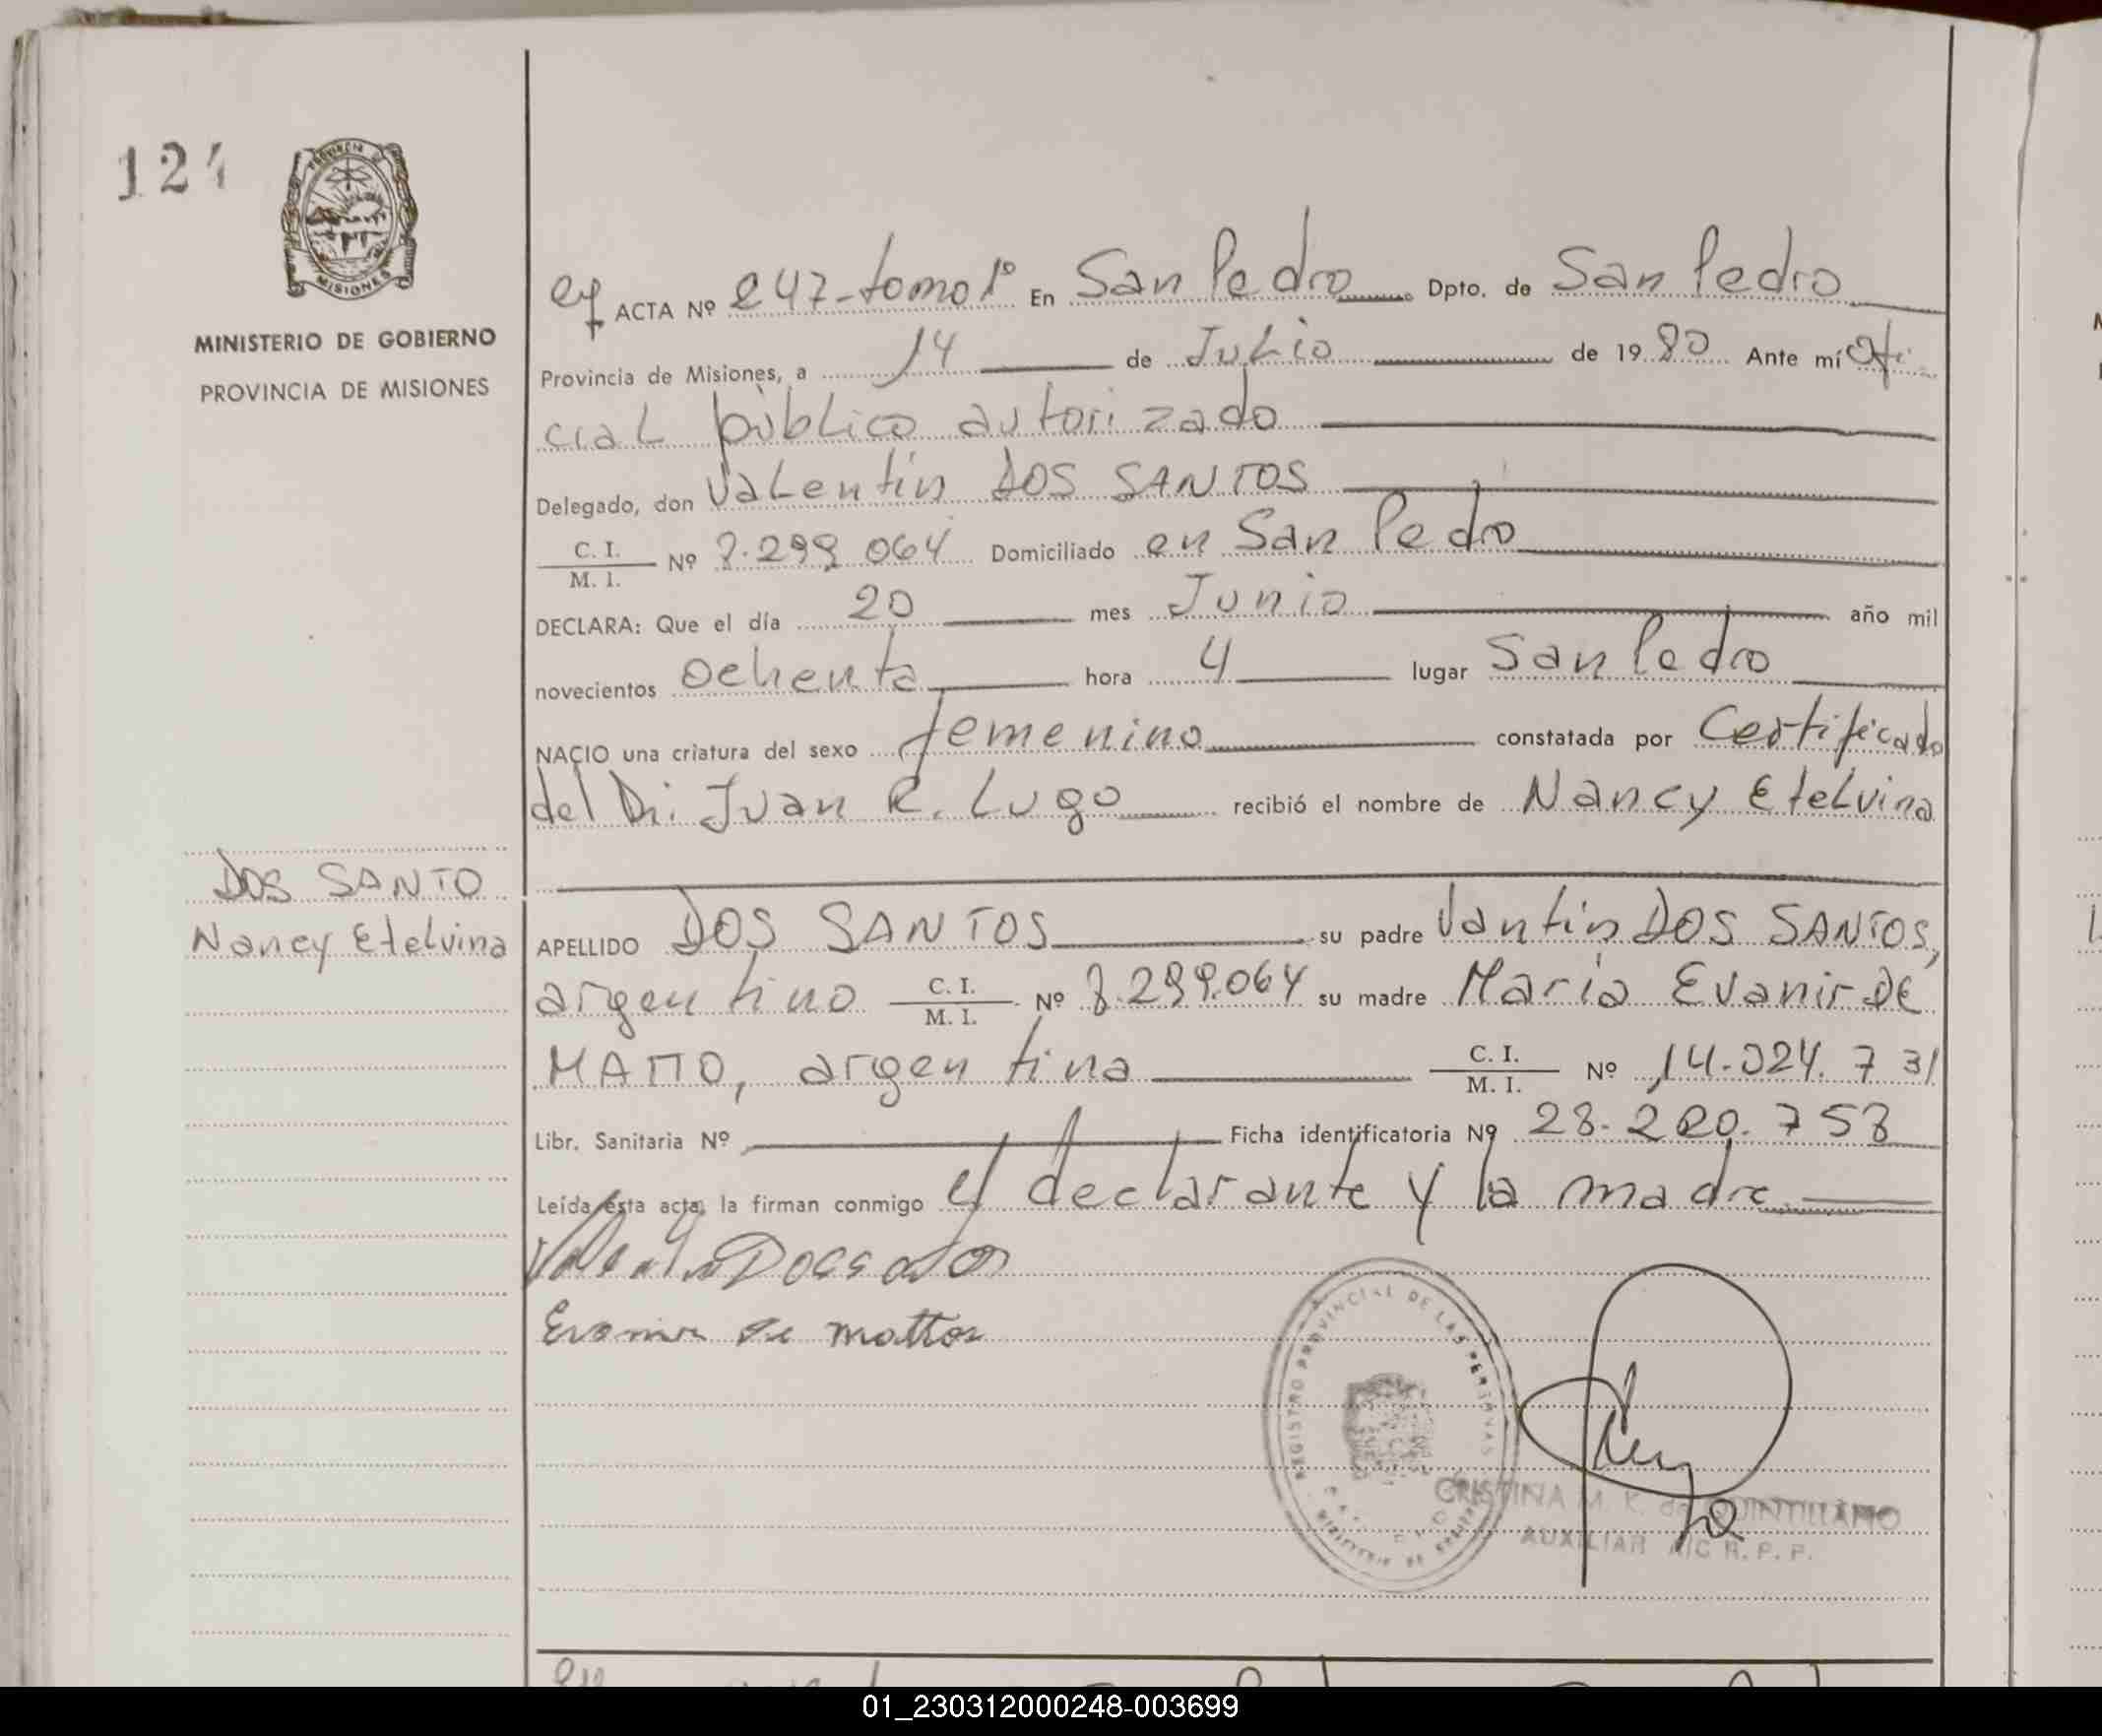 124
PROVINCIA DE
MISIONES
MINISTERIO DE GOBIERNO
PROVINCIA DE MISIONES
ACTA Nº 247-tomo 1º En San Pedro Dpto. de San Pedro
Provincia de Misiones, a 14 de Julio de 1980 Ante mí Ofi
cial público autorizado
Delegado, don Valentin DOS SANTOS
C. I. / M. I. Nº 8.299.064 Domiciliado en San Pedro
DECLARA: Que el día 20 mes Junio año mil
novecientos ochenta hora 4 lugar San Pedro
NACIO una criatura del sexo femenino constatada por Certificado
del Dr. Juan R. Lugo recibió el nombre de Nancy Etelvina
DOS SANTO
Nancy Etelvina
APELLIDO DOS SANTOS su padre Vantin DOS SANTOS,
argentino C. I. / M. I. Nº 8.299.064 su madre Maria Evanir DE
MATTO, argentina C. I. / M. I. Nº 14.024.731
Libr. Sanitaria Nº Ficha identificatoria Nº 28.220.758
Leída ésta acta, la firman conmigo el declarante y la madre
Evanir de mattos
REGISTRO PROVINCIAL DE LAS PERSONAS
MINISTERIO DE GOBIERNO
CRISTINA M. K. de QUINTILLANO
AUXILIAR A/C R. P. P.
01_230312000248-003699